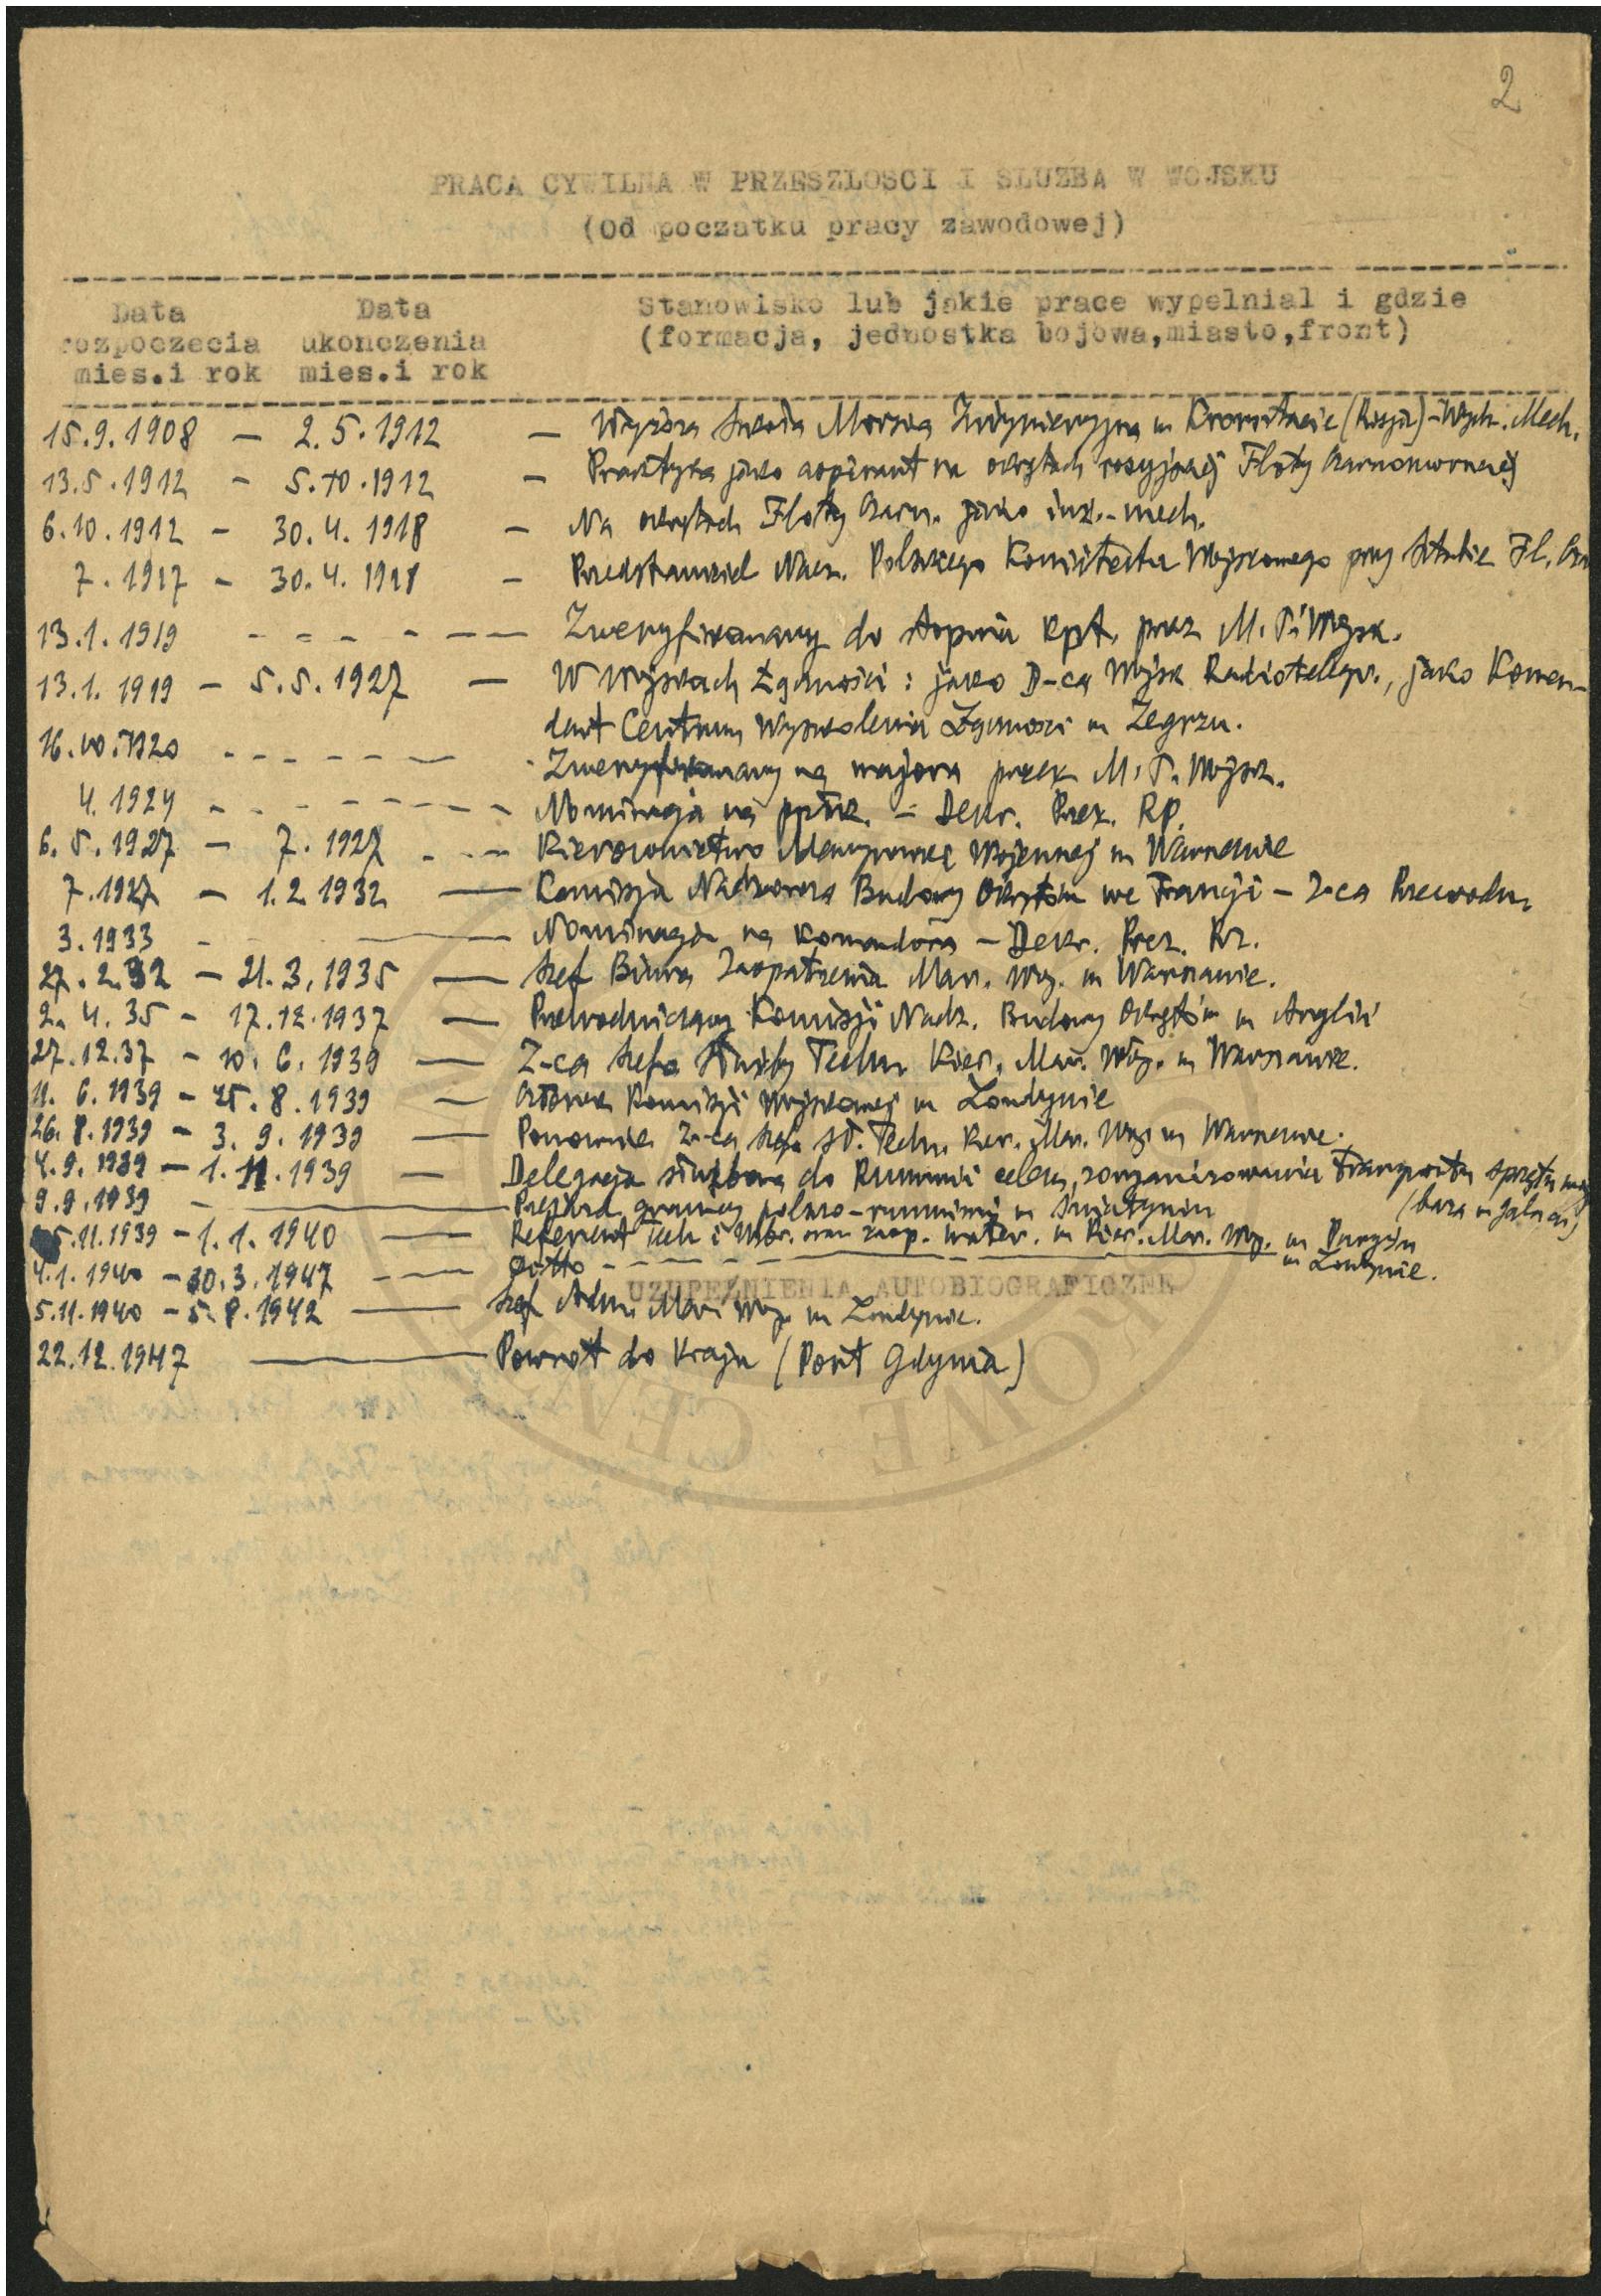 2
PRACA CYWILNA W PRZESZLOSCI I SLUZBA W WOJSKU
(Od poczatku pracy zawodowej)
Data Data Stanowisko lub jakie prace wypelnial i gdzie
rozpoczecia ukonczenia (formacja, jednostka bojowa,miasto,front)
mies.i rok mies.i rok
15.9.1908 — 2.5.1912 — Wyższa Szkoła Morska Inżynieryjna w Kronsztacie (Rosja) - Wydz. Mech.
13.5.1912 - 5.10.1912 - Praktyka jako aspirant na okrętach rosyjskiej Floty Czarnomorskiej
6.10.1912 - 30.4.1918 - Na okrętach Floty Czarn. jako inż.-mech.
7.1917 - 30.4.1918 - Przedstawiciel Nacz. Polskiego Komitetu Wojskowego przy Sztabie Fl. Cza
13.1.1919 - - - - — Zweryfikowany do stopnia kpt. przez M. S. Wojsk.
13.1.1919 - 5.5.1927 — W Wojskach Łączności: jako D-ca Wojsk Radiotelegr., jako Komen-
dant Centrum Wyszkolenia Łączności w Zegrzu.
16.10.1920 - - - - - Zweryfikowany na majora przez M. S. Wojsk.
4.1924 - - - - - - Nominacja na ppłk. - Dekr. Prez. RP.
6.5.1927 — 7.1927 - - - Kierownictwo Marynarki Wojennej w Warszawie
7.1927 — 1.2.1932 — Komisja Nadzorcza Budowy Okrętów we Francji - Z-ca Przewodn.
3.1933 - — Nominacja na Komandora - Dekr. Prez. Rz.
27.2.32 — 21.3.1935 — Szef Biura Zaopatrzenia Mar. Woj. w Warszawie.
2.4.35 - 17.12.1937 — Przewodniczący Komisji Nadz. Budowy Okrętów w Anglii
27.12.37 - 10.6.1939 — Z-ca Szefa Służby Techn. Kier. Mar. Woj. w Warszawie.
11.6.1939 - 25.8.1939 — Członek Komisji Wojskowej w Londynie
26.8.1939 - 3.9.1939 — Ponownie Z-ca Szefa Sł. Techn. Kier. Mar. Woj. w Warszawie.
4.9.1939 — 1.11.1939 — Delegacja służbowa do Rumunii celem zorganizowania transportu sprzętu woj
9.9.1939 - — Przejazd granicy polsko-rumuńskiej w Śniatyniu (baza w Galacu)
5.11.1939 - 1.1.1940 — Referent Tech i Uzbr. oraz zaop. mater. w Kier. Mar. Woj. w Paryżu
4.1.1940 - 30.3.1947 - - - ditto - - - w Londynie.
UZUPEŁNIENIA AUTOBIOGRAFICZNE
5.11.1940 - 5.8.1942 — Szef Adm. Mar. Woj. w Londynie.
22.12.1947 — Powrót do Kraju (Port Gdynia)